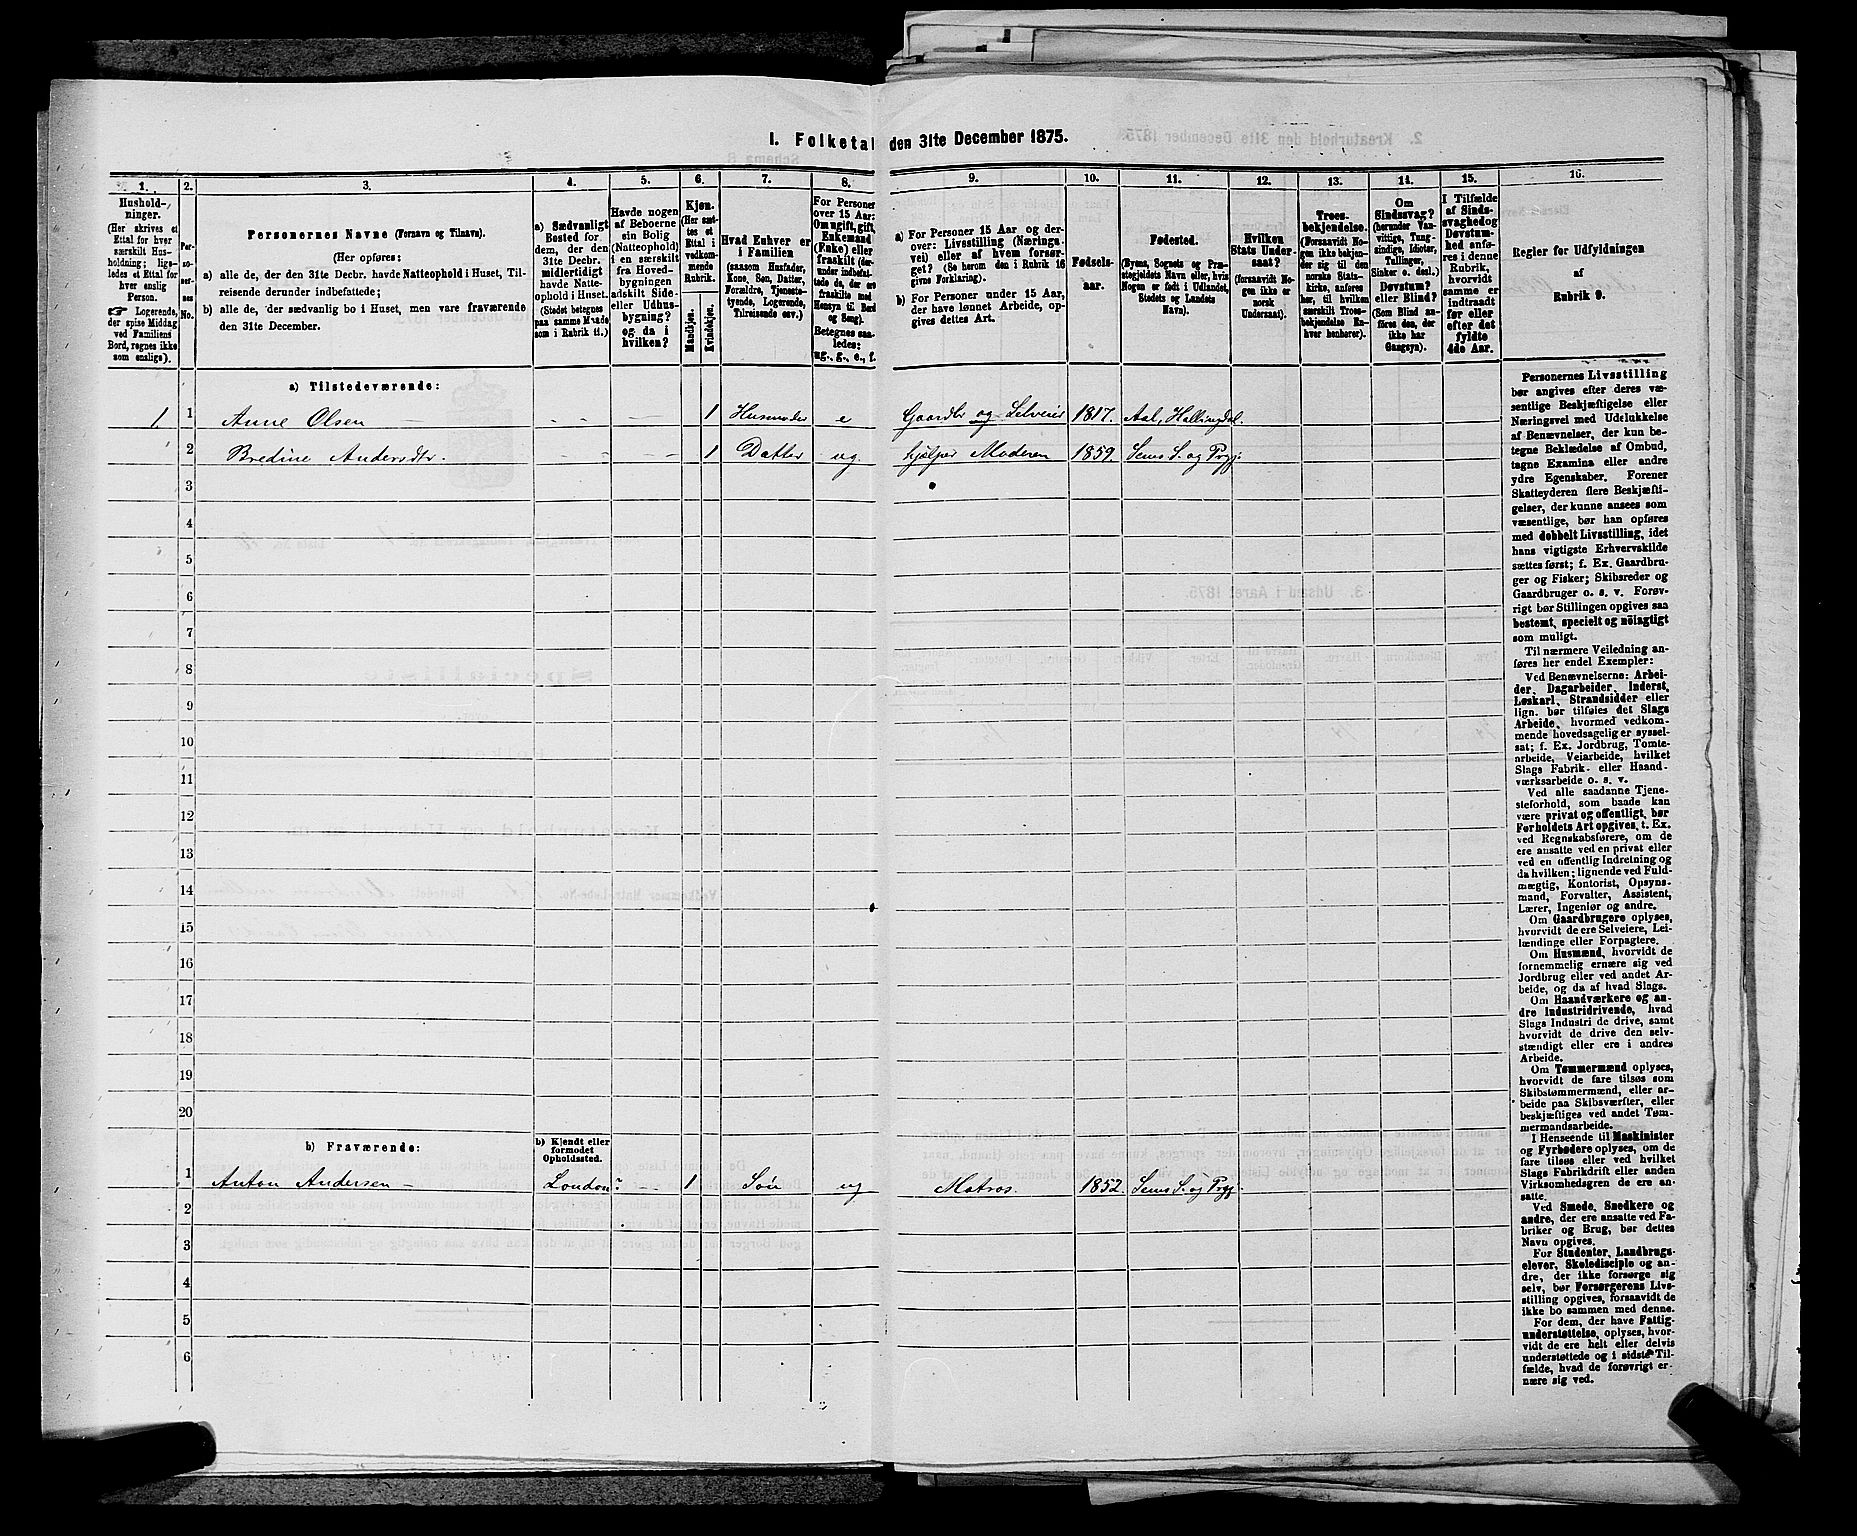 I. Folketal den 31te December 1875.
1. 2. 3. 4. 5. 6. 7. 8. 9. 10. 11. 12. 13. 14. 15. 16.
Hushold-
ninger.
(Her skrives et
Ettal for hver
særskilt Hus-
holdning; lige-
ledes et Ettal for
hver enslig
Person.
☞ Logerende,
der spise Middag
ved Familiens
Bord, regnes ikke
som enslige).
Per-
so-
ner-
nes
No.
Personernes Navne (Fornavn og Tilnavn).
(Her opføres:
a) alle de, der den 31te Decbr. havde Natteophold i Huset, Til-
reisende derunder indbefattede;
b) alle de, der sædvanlig bo i Huset, men vare fraværende
den 31te December.
a) Sædvanligt
Bosted for
dem, der den
31te Decbr.
midlertidigt
havde Natte-
ophold i Huset.
(Stedet betegnes
paa samme Maade
som i Rubrik 11.)
Havde nogen
af Beboerne
sin Bolig
(Natteophold)
i en særskilt
fra Hoved-
bygningen
adskilt Side-
eller Udhus-
bygning?
og da i
hvilken?
Kjøn.
(Her sæt-
tes et
Ettal i
vedkom-
mende
Rubrik.
Mandkjøn.
Kvindekjøn.
Hvad Enhver er
i Familien
(saasom Husfader,
Kone, Søn, Datter,
Forældre, Tjeneste-
tyende, Logerende,
Tilreisende osv.)
For Personer
over 15 Aar:
Om ugift, gift,
Enkemand
(Enke) eller
fraskilt (der-
under indbefat-
tede de, der ere
fraskilte med
Hensyn til Bord
og Seng).
Betegnes saa-
ledes:
ug., g., e., f.
a) For Personer 15 Aar og der-
over: Livsstilling (Nærings-
vei) eller af hvem forsør-
get? (Se herom den i Rubrik 16
givne Forklaring).
b) For Personer under 15 Aar,
der have lønnet Arbeide, op-
gives dettes Art.
Fødsels-
aar.
Fødested.
(Byens, Sognets og Præ-
stegjeldets Navn eller, hvis
Nogen er født i Udlandet,
Stedets og Landets
Navn).
Hvilken
Stats Under-
saat?
(forsaavidt No-
gen ikke er
norsk
Undersaat).
Troes-
bekjendelse.
(Forsaavidt No-
gen ikke bekjen-
der sig til den
norske Stats-
kirke, anføres
her, til hvilken
særskilt Troes-
bekjendelse En-
hver henhører).
Om
Sindssvag?
(herunder Van-
vittige, Tung-
sindige, Idioter,
Tullinger,
Sinker o. desl.)
Døvstum?
eller Blind?
(Som Blind an-
føres den, der
ikke har
Gangsyn).
I Tilfælde
af Sinds-
svaghed og
Døvstum-
hed anfø-
res i denne
Rubrik,
hvorvidt
samme er
indtraadt
før eller
efter det
fyldte
4de Aar.
Regler for Udfyldningen
af
Rubrik 9.
a) Tilstedeværende:
1 1 Anne Olsen 1 Husmoder e Gaardbr og Selveier 1817. Aal, Hallingdal.
2 Bredine Andersdtr. 1 Datter ug. hjelper Moderen 1859. Sems S. og Prgj.
3
4
5
6
7
8
9
10
11
12
13
14
15
16
17
18
19
20
b) Fraværende:
b) Kjendt eller
formodet
Opholdssted.
1 Anton Andersen London? 1 Søn ug Matros. 1852. Sems S. og Prgj.
2
3
4
5
6
Personernes Livsstilling
bør angives efter deres væ-
sentlige Beskjæftigelse eller
Næringsvei med Udelukkelse
af Benævnelser, der kun be-
tegne Beklædelse af Ombud,
tagne Examina eller andre
ydre Egenskaber. Forener
Skatteyderen flere Beskjæfti-
gelser, der kunne ansees som
væsentlige, bør han opføres
med dobbelt Livsstilling, idet
hans vigtigste Erhvervskilde
sættes først; f. Ex. Gaardbru-
ger og Fisker; Skibsreder og
Gaardbruger o. s. v. Forøv-
rigt bør Stillingen opgives saa
bestemt, specielt og nöiagtigt
som muligt.
Til nærmere Veiledning an-
føres her endel Exempler:
Ved Benævnelserne: Arbei-
der, Dagarbeider, Inderst,
Løskarl, Strandsidder eller
lign. bør tilføies det Slags
Arbeide, hvormed vedkom-
mende hovedsagelig er syssel-
sat; f. Ex. Jordbrug, Tomte-
arbeide, Veiarbeide, hvilket
Slags Fabrik- eller Haand-
værksarbeide o. s. v.
Ved alle saadanne Tjene-
steforhold, som baade kan
være privat og offentligt, bør
Forholdets Art opgives, t. Ex.
ved Regnskabsførere, om de
ere ansatte ved en privat eller
ved en offentlig Indretning og
da hvilken; lignende ved Fuld-
mægtig, Kontorist, Opsyns-
mand, Forvalter, Assistent,
Lærer, Ingeniør og andre.
Om Gaardbrugere oplyses,
hvorvidt de ere Selveiere, Lei-
lændinge eller Forpagtere.
Om Husmænd, hvorvidt de
fornemmelig ernære sig ved
Jordbrug eller ved andet Ar-
beide, og da af hvad Slags.
Om Haandværkere og an-
dre Industridrivende, hvad
Slags Industri de drive, samt
hvorvidt de drive den selv-
stændigt eller ere i andres
Arbeide.
Om Tømmermænd oplyses,
hvorvidt de fare tilsøs som
Skibstømmermænd, eller ar-
beide paa Skibsværfter, eller
beskjæftiges ved andet Tøm-
mermandsarbeide.
I Henseende til Maskinister
og Fyrbødere oplyses, om de
fare tilsøs eller ved hvilket
Slags Fabrikdrift eller anden
Virksomhedsgren de ere an-
satte.
Ved Smede, Snedkere og
andre, der ere ansatte ved Fa-
briker og Brug, bør dettes
Navn opgives.
For Studenter, Landbrugs-
elever, Skoledisciple og an-
dre, der ikke forsørge sig
selv, bør Forsørgerens Livs-
stilling opgives, forsaavidt de
ikke bo sammen med denne.
For dem, der have Fattig-
understøttelse, oplyses, hvor-
vidt de ere helt eller delvis
understøttede og i sidste Til-
fælde, hvad de forøvrigt er-
nære sig ved.